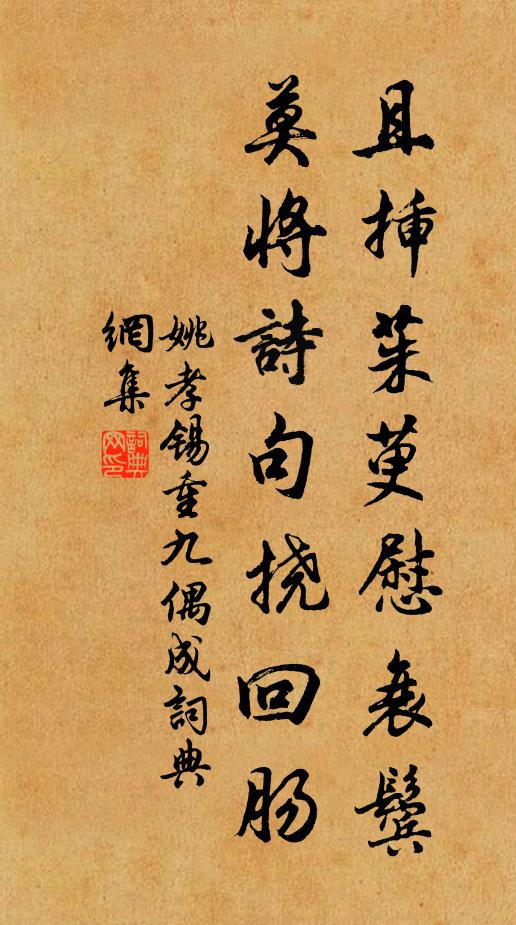 且挿茱萸慰衰鬓
莫将詩句挠回肠
姚孝锡重九偶成詞典
網集
詞典
网印